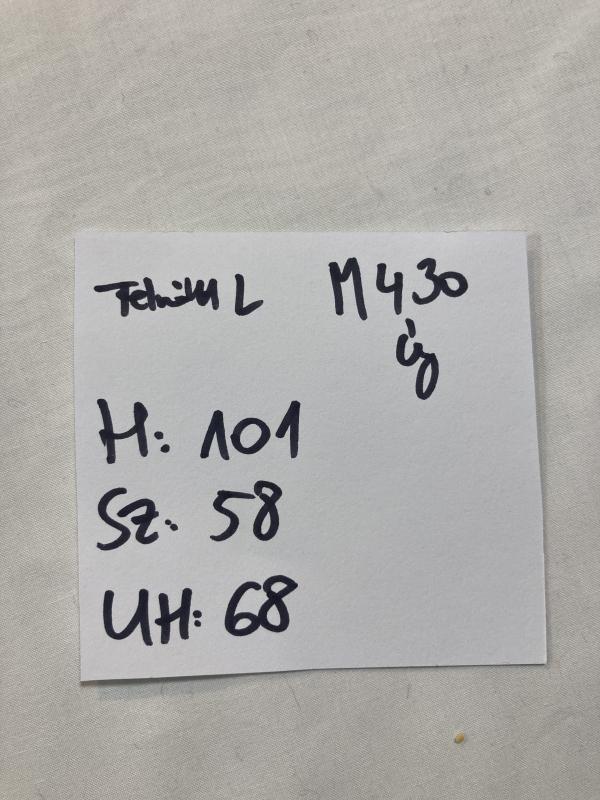 L M430
új
H: 101
Sz: 58
UH: 68